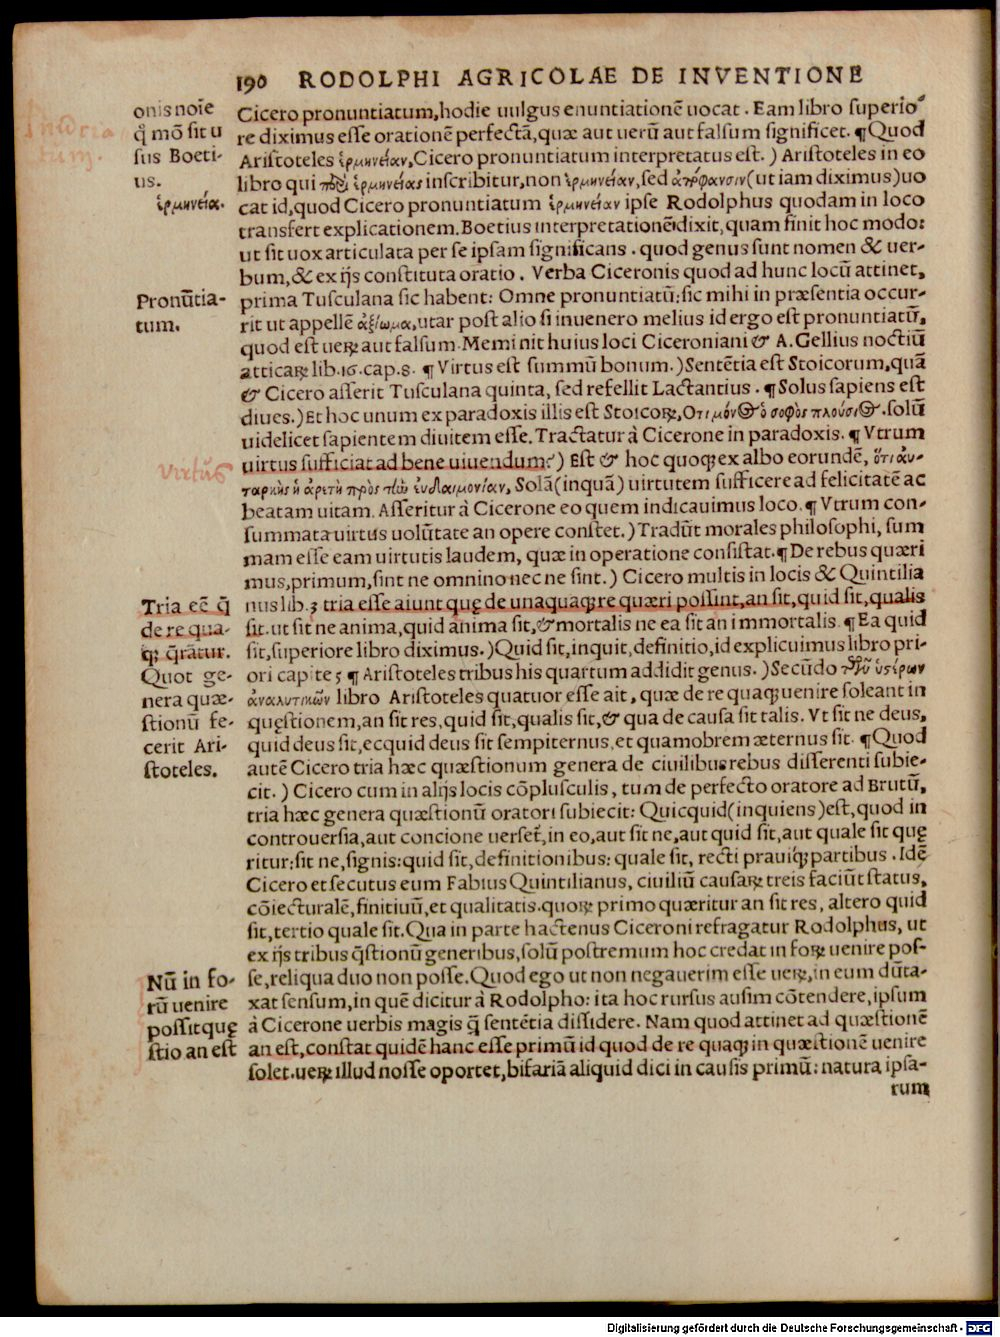 190 RODOLPHI AGRICOLAE DE INVENTIONE
onis noīe
q̄ mō sit u
sus Boeti-
us.
ἑρμηνεία.
Pronūtia-
tum.
virtus
Tria eē q̄
de re qua-
q; q̄rātur.
Quot ge-
nera quæ-
stionū fe-
cerit Ari-
stoteles.
Nū in fo-
rū uenire
possit quę
stio an est
Cicero pronuntiatum, hodie uulgus enuntiationē uocat. Eam libro superio
re diximus esse orationē perfectā, quæ aut uerū aut falsum significet. ¶ Quod
Aristoteles ἑρμηνείαν, Cicero pronuntiatum interpretatus est.) Aristoteles in eo
libro qui περὶ ἑρμηνείας inscribitur, non ἑρμηνείαν, sed ἀπόφανσιν (ut iam diximus) uo
cat id, quod Cicero pronuntiatum ἑρμηνείαν ipse Rodolphus quodam in loco
transfert explicationem. Boetius interpretationē dixit, quam finit hoc modo:
ut sit uox articulata per se ipsam significans. quod genus sunt nomen & uer-
bum, & ex ijs constituta oratio. Verba Ciceronis quod ad hunc locū attinet,
prima Tusculana sic habent: Omne pronuntiatū: sic mihi in præsentia occur-
rit ut appellē ἀξίωμα, utar post alio si inuenero melius id ergo est pronuntiatū,
quod est ueꝝ aut falsum. Meminit huius loci Ciceroniani & A. Gellius noctiū
atticaꝝ lib. 16. cap. 8. ¶ Virtus est summū bonum.) Sentētia est Stoicorum, quā
& Cicero asserit Tusculana quinta, sed refellit Lactantius. ¶ Solus sapiens est
diues.) Et hoc unum ex paradoxis illis est Stoicoꝝ, Οτι μόνος ὁ σοφὸς πλούσιος. solū
uidelicet sapientem diuitem esse. Tractatur à Cicerone in paradoxis. ¶ Vtrum
uirtus sufficiat ad bene uiuendum?) Est & hoc quoq; ex albo eorundē, ὅτι ἀυ-
ταρκὴς ἡ ἀρετὴ πρὸς τὴν ἐυδαιμονίαν, Solā (inquā) uirtutem sufficere ad felicitatē ac
beatam uitam. Asseritur à Cicerone eo quem indicauimus loco. ¶ Vtrum con-
summata uirtus uolūtate an opere constet.) Tradūt morales philosophi, sum
mam esse eam uirtutis laudem, quæ in operatione consistat. ¶ De rebus quæri
mus, primum, sint ne omnino nec ne sint.) Cicero multis in locis & Quintilia
nus lib. 3 tria esse aiunt quę de unaquaq; re quæri possint, an sit, quid sit, qualis
sit. ut sit ne anima, quid anima sit, & mortalis ne ea sit an immortalis. ¶ Ea quid
sit, superiore libro diximus.) Quid sit, inquit, definitio, id explicuimus libro pri-
ori capite 5 ¶ Aristoteles tribus his quartum addidit genus.) Secūdo τῶν ὑστέρων
ἀναλυτικῶν libro Aristoteles quatuor esse ait, quæ de re quaq; uenire soleant in
quęstionem, an sit res, quid sit, qualis sit, & qua de causa sit talis. Vt sit ne deus,
quid deus sit, ecquid deus sit sempiternus, et quamobrem æternus sit. ¶ Quod
autē Cicero tria hæc quæstionum genera de ciuilibus rebus disserenti subie-
cit.) Cicero cum in alijs locis cōplusculis, tum de perfecto oratore ad Brutū,
tria hæc genera quæstionū oratori subiecit: Quicquid (inquiens) est, quod in
controuersia, aut concione uerset̄, in eo, aut sit ne, aut quid sit, aut quale sit quę
ritur: sit ne, signis: quid sit, definitionibus: quale sit, recti prauiq; partibus. Idē
Cicero et secutus eum Fabius Quintilianus, ciuiliū causaꝝ treis faciūt status,
cōiecturalē, finitiuū, et qualitatis. quoꝝ primo quæritur an sit res, altero quid
sit, tertio quale sit. Qua in parte hactenus Ciceroni refragatur Rodolphus, ut
ex ijs tribus q̄stionū generibus, solū postremum hoc credat in foꝝ uenire pos-
se, reliqua duo non posse. Quod ego ut non negauerim esse ueꝝ, in eum dūta-
xat sensum, in quē dicitur à Rodolpho: ita hoc rursus ausim cōtendere, ipsum
à Cicerone uerbis magis q̄ sentētia dissidere. Nam quod attinet ad quæstionē
an est, constat quidē hanc esse primū id quod de re quaq; in quæstionē uenire
solet. ueꝝ illud nosse oportet, bifariā aliquid dici in causis primū: natura ipsa-
rum
Digitalisierung gefördert durch die Deutsche Forschungsgemeinschaft - DFG